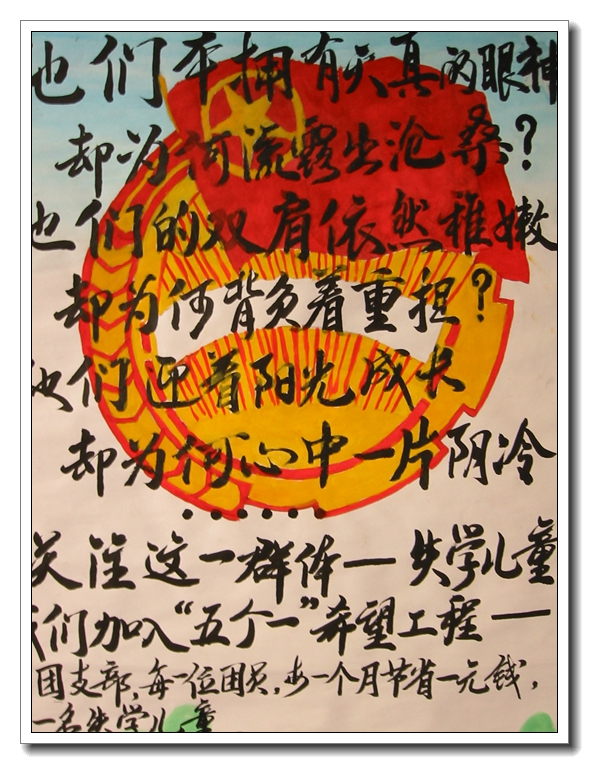 他们本拥有天真的眼神
却为何流露出沧桑?
他们的双肩依然稚嫩
却为何背负着重担?
他们迎着阳光成长
却为何心中一片阴冷
......
关注这一群体—失学儿童
我们加入“五个一”希望工程—
团支部,每一位团员,每一个月节省一元钱,
一名失学儿童